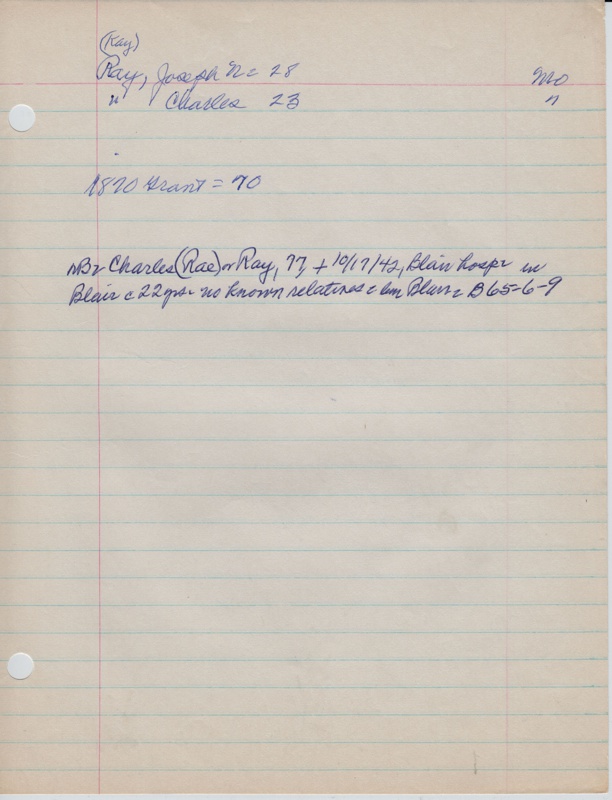 (Kay)
Ray, Joseph N = 28 Mo
" Charles 23 "
1870 Grant = 70
NB= Charles (Rae) or Ray, 77, + 10/17/42, Blair hosp= in
Blair c 22 yrs = no known relatives = bur Blair = B65-6-9